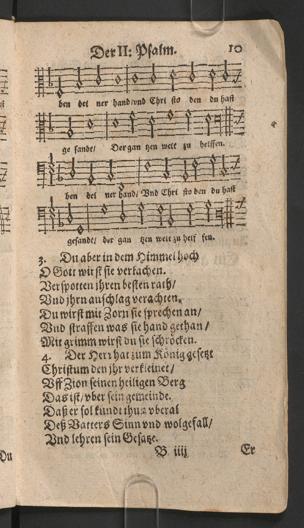 Der II: Psalm. 10
ben bei ner hand/vnd Chri sto den du hast
ge sandt/ Der gan tzen welt zu helffen.
ben bei ner hand/ Vnd Chri sto den du hast
gesandt/ der gan tzen welt zu helf fen.
3. Du aber in dem Himmel hoch
O Gott wirst sie verlachen.
Verspotten jhren besten rath/
Vnd jhrn anschlag verachten.
Du wirst mit Zorn sie sprechen an/
Vnd straffen was sie hand gethan/
Mit grimm wirst du sie schröcken.
4. Der Herr hat zum König gesetzt
Christum den jhr verkleinet/
Vff Zion seinen heiligen Berg
Das ist/ vber sein gemeinde.
Daß er sol kundt thun vberal
Deß Vatters Sinn vnd wolgefall/
Vnd lehren sein Gesatze.
B iiij Er